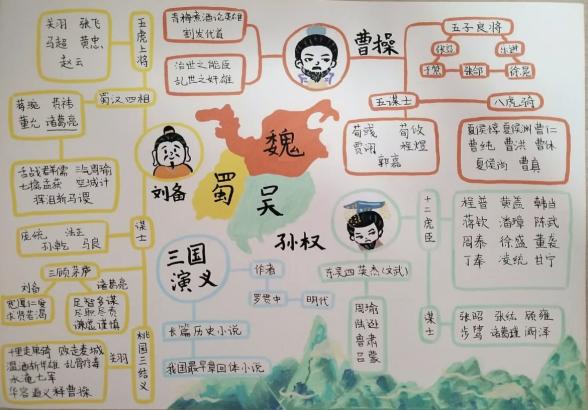 关羽 张飞
马超 黄忠
赵云
五虎上将
蒋琬 费祎
董允 诸葛亮
蜀汉四相
舌战群儒 三气周瑜
七擒孟获 空城计
挥泪斩马谡
谋士
庞统 法正
孙乾 马良
三顾茅庐
刘备
宽厚仁爱
求贤若渴
诸葛亮
足智多谋
尽职尽责
谦虚谨慎
桃园三结义
关羽
千里走单骑 败走麦城
温酒斩华雄 刮骨疗毒
水淹七军
华容道义释曹操
青梅煮酒论英雄
割发代首
治世之能臣
乱世之奸雄
曹操
五子良将
张辽 乐进
于禁 张郃 徐晃
五谋士
荀彧 荀攸
贾诩 程昱
郭嘉
八虎骑
夏侯惇 夏侯渊 曹仁
曹纯 曹洪 曹休
夏侯尚 曹真
刘备
魏
蜀
吴
孙权
三国
演义
作者
罗贯中
明代
长篇历史小说
我国最早章回体小说
东吴四英杰(文武)
周瑜
陆逊
鲁肃
吕蒙
十二虎臣
程普 黄盖 韩当
蒋钦 潘璋 陈武
周泰 徐盛 董袭
丁奉 凌统 甘宁
谋士
张昭 张纮 顾雍
步骘 诸葛瑾 阚泽